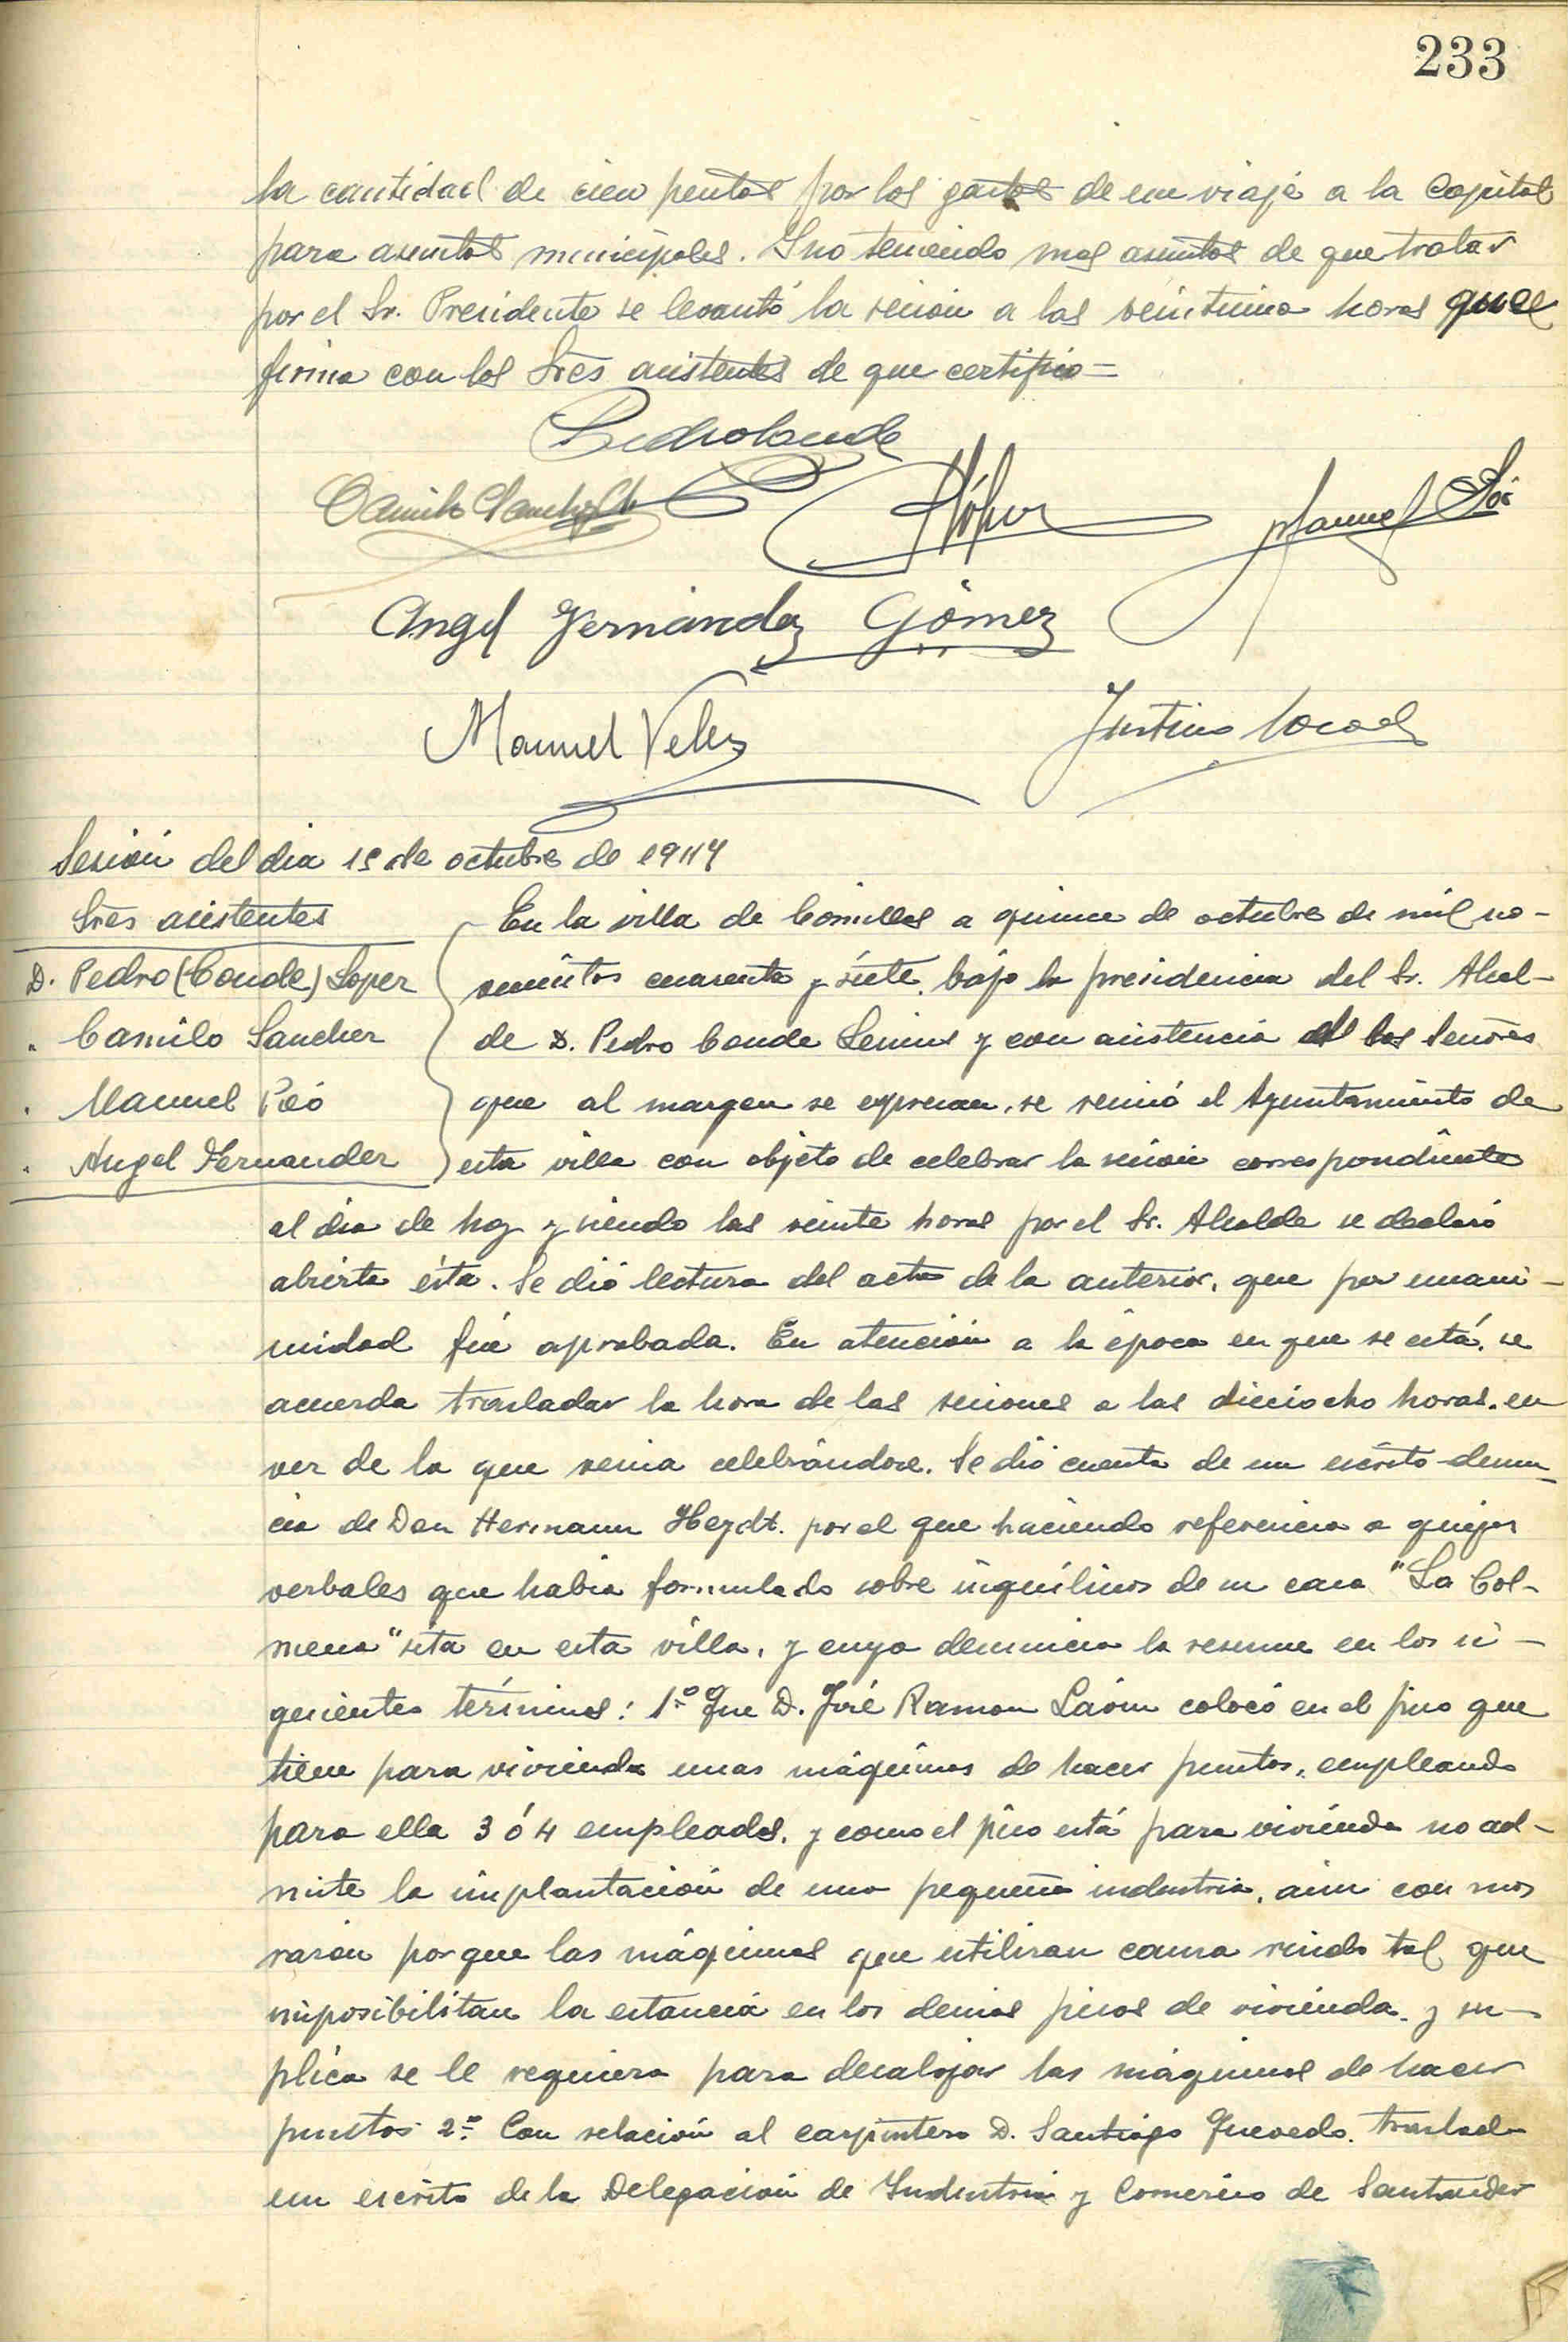 233
la cantidad de cien pesetas por los gastos de un viaje a la Capital
para asuntos municipales. Y no teniendo mas asuntos de que tratar
por el Sr. Presidente se levantó la sesion a las veintiuna horas que
firma con los Sres asistentes de que certifico=
Pedro Conde
Camilo Sanchez
PLópez
Manuel
Angel Fernández Gómez
Manuel Velez
Justino
Sesión del dia 15 de octubre de 1947
Sres asistentes
D. Pedro (Conde) Lopez
" Camilo Sanchez
" Manuel
" Angel Fernandez
En la villa de Comillas a quince de octubre de mil no-
vecientos cuarenta y siete, bajo la presidencia del Sr. Alcal-
de D. Pedro Conde y con asistencia de los Señores
que al margen se expresan, se reunió el Ayuntamiento de
esta villa con objeto de celebrar la sesión correspondiente
al dia de hoy y siendo las veinte horas por el Sr. Alcalde se declaró
abierta ésta. Se dió lectura del acta de la anterior, que por unani-
midad fué aprobada. En atención a la época en que se está, se
acuerda trasladar la hora de las sesiones a las dieciocho horas, en
vez de la que venia celebrándose. Se dió cuenta de un escrito denun-
cia de Don Hermann Heydt. por el que haciendo referencia a quejas
verbales que habia formulado sobre inquilinos de su casa "La Col-
mena" sita en esta villa, y cuya denuncia la resume en los si-
guientes términos: 1º Que D. José Ramon colocó en el piso que
tiene para vivienda unas máquinas de hacer puntos, empleando
para ella 3 ó 4 empleados, y como el piso está para vivienda no ad-
mite la implantación de una pequeña industria, aún con mas
razón porque las máquinas que utilizan causa ruido tal que
imposibilitan la estancia en los demas pisos de vivienda, y su-
plica se le requiera para desalojar las máquinas de hacer
puntos 2º Con relación al carpintero D. Santiago Quevedo, traslada
un escrito de la Delegación de Industria y Comercio de Santander